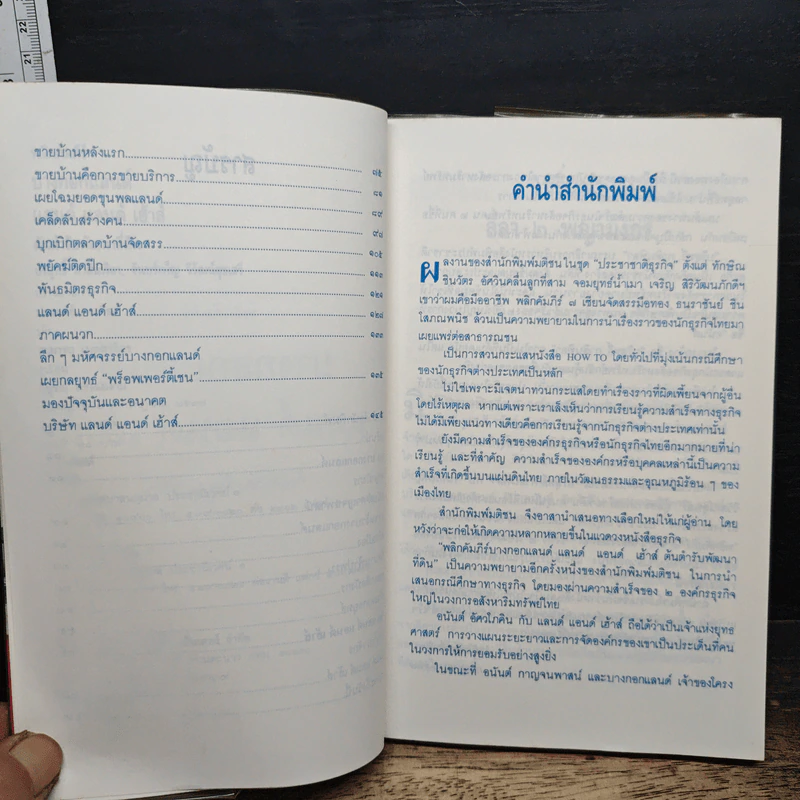 ขายบ้านหลังแรก
ขายบ้านคือการขายบริการ ๗๕
เผยโฉมยอดขุนพลแลนด์ ๘๑
เคล็ดลับสร้างคน ๘๙
บุกเบิกตลาดบ้านจัดสรร ๙๘
พยัคฆ์ติดปีก ๑๐๕
พันธมิตรธุรกิจ
แลนด์ แอนด์ เฮ้าส์ ๑๒๑
ภาคผนวก ๑๒๘
ลึก ๆ มหัศจรรย์บางกอกแลนด์
เผยกลยุทธ์ “พร็อพเพอร์ตี้เชน” ๑๓๕
มองปัจจุบันและอนาคต
บริษัท แลนด์ แอนด์ เฮ้าส์
คำนำสำนักพิมพ์
ผลงานของสำนักพิมพ์มติชน ในชุด “ประชาชาติธุรกิจ” ตั้งแต่ ทักษิณ
ชินวัตร อัศวินคลื่นลูกที่สาม จอมยุทธ์น้ำเมา เจริญ สิริวัฒนภักดีฯ
เขาว่าผมคือมืออาชีพ พลิกคัมภีร์ ๗ เซียนจัดสรรมือทอง ธนราชันย์ ชิน
โสภณพนิช ล้วนเป็นความพยายามในการนำเรื่องราวของนักธุรกิจไทยมา
เผยแพร่ต่อสาธารณชน
เป็นการสวนกระแสหนังสือ HOW TO โดยทั่วไปที่มุ่งเน้นกรณีศึกษา
ของนักธุรกิจต่างประเทศเป็นหลัก
ไม่ใช่เพราะมีเจตนาทวนกระแสโดยทำเรื่องราวที่ผิดเพี้ยนจากผู้อื่น
โดยไร้เหตุผล หากแต่เพราะเราเล็งเห็นว่าการเรียนรู้ความสำเร็จทางธุรกิจ
ไม่ได้มีเพียงแนวทางเดียวคือการเรียนรู้จากนักธุรกิจต่างประเทศเท่านั้น
ยังมีความสำเร็จขององค์กรธุรกิจหรือนักธุรกิจไทยอีกมากมายที่น่า
เรียนรู้ และที่สำคัญ ความสำเร็จขององค์กรหรือบุคคลเหล่านี้เป็นความ
สำเร็จที่เกิดขึ้นบนแผ่นดินไทย ภายในวัฒนธรรมและอุณหภูมิร้อน ๆ ของ
เมืองไทย
สำนักพิมพ์มติชน จึงอาสานำเสนอทางเลือกใหม่ให้แก่ผู้อ่าน โดย
หวังว่าจะก่อให้เกิดความหลากหลายขึ้นในแวดวงหนังสือธุรกิจ
“พลิกคัมภีร์บางกอกแลนด์ แลนด์ แอนด์ เฮ้าส์ ต้นตำรับพัฒนา
ที่ดิน” เป็นความพยายามอีกครั้งหนึ่งของสำนักพิมพ์มติชน ในการนำ
เสนอกรณีศึกษาทางธุรกิจ โดยมองผ่านความสำเร็จของ ๒ องค์กรธุรกิจ
ใหญ่ในวงการอสังหาริมทรัพย์ไทย
อนันต์ อัศวโภคิน กับ แลนด์ แอนด์ เฮ้าส์ ถือได้ว่าเป็นเจ้าแห่งยุทธ
ศาสตร์ การวางแผนระยะยาวและการจัดองค์กรของเขาเป็นประเด็นที่คน
ในวงการให้การยอมรับอย่างสูงยิ่ง
ในขณะที่ อนันต์ กาญจนพาสน์ และบางกอกแลนด์ เจ้าของโครง